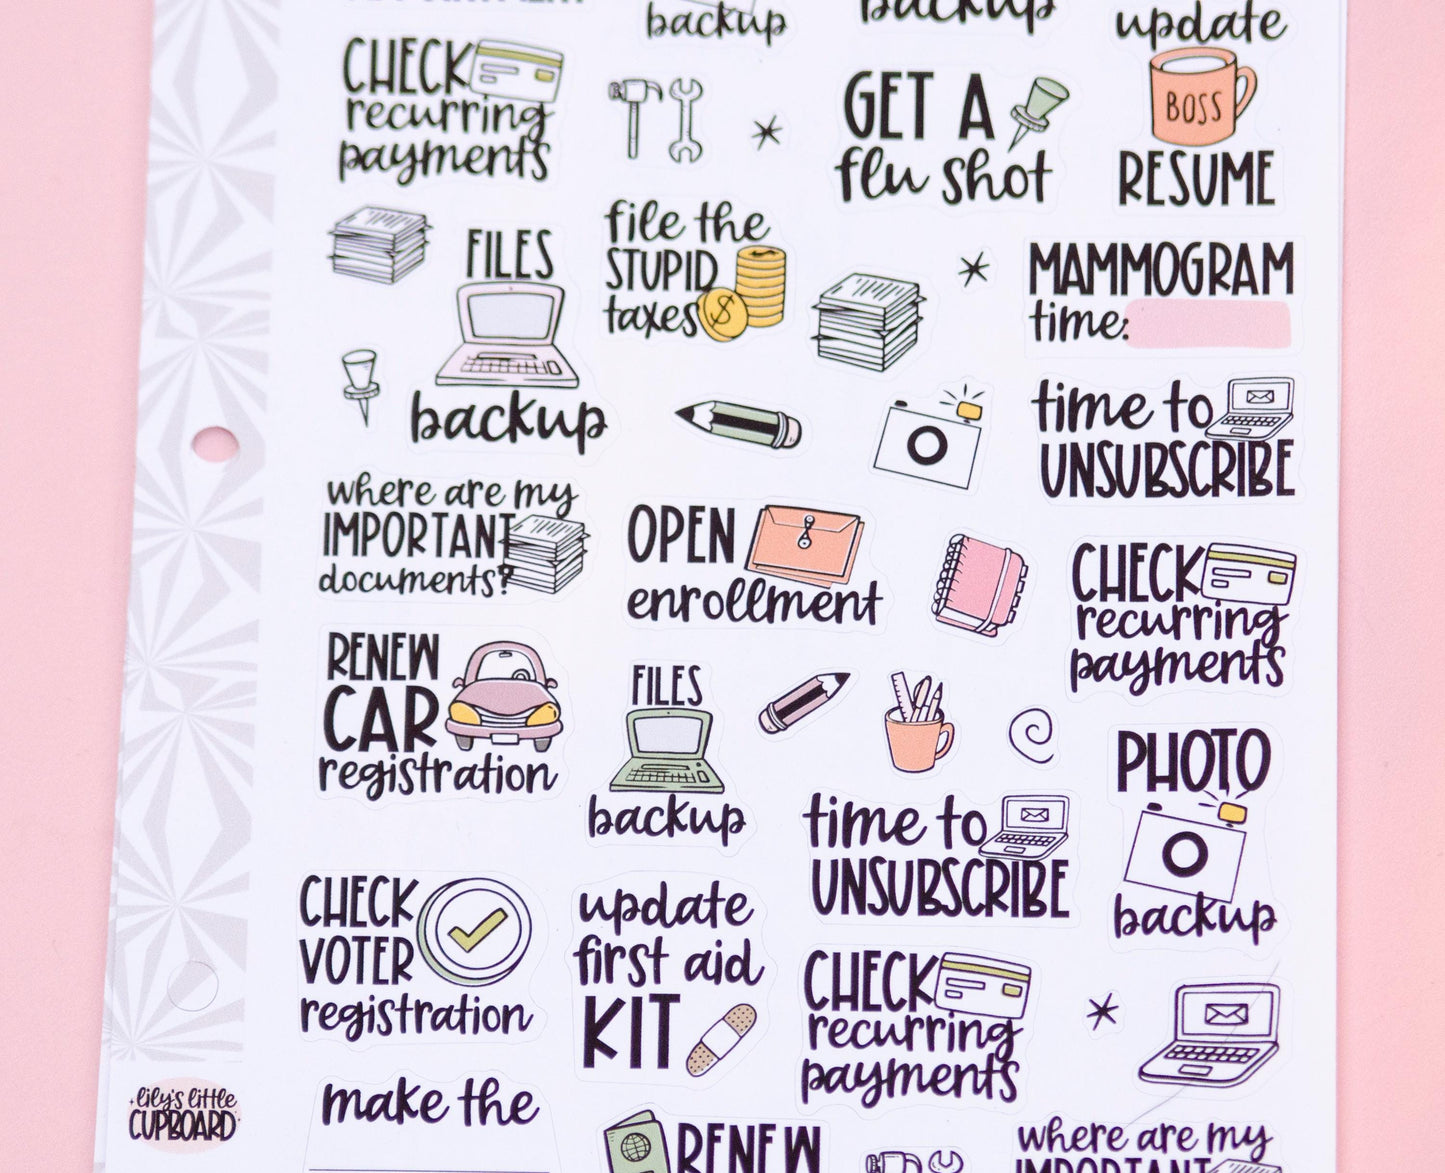 backup
backup
update
BOSS
RESUME
CHECK
recurring
payments
GET A
flu shot
FILES
backup
file the
STUPID
taxes
$
MAMMOGRAM
time:
time to
UNSUBSCRIBE
where are my
IMPORTANT
documents?
OPEN
enrollment
CHECK
recurring
payments
RENEW
CAR
registration
FILES
backup
time to
UNSUBSCRIBE
PHOTO
backup
CHECK
VOTER
registration
update
first aid
KIT
CHECK
recurring
payments
lily's little
CUPBOARD
make the
RENEW
where are my
IMPORTANT